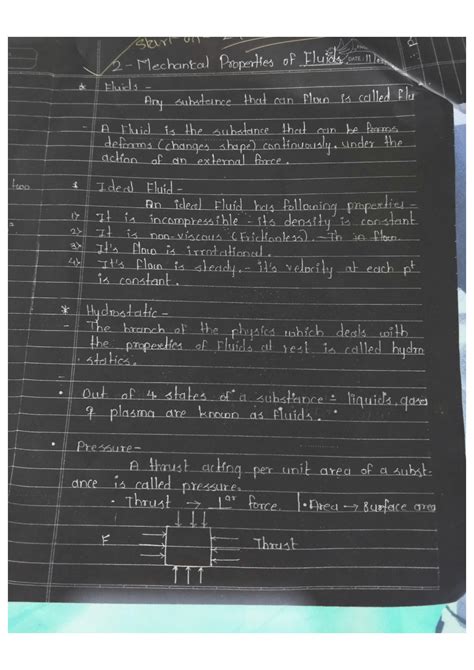 Start on -
2 - Mechanical Properties of Fluids DATE: 11
* Fluids -
Any substance that can flow is called flu
- A Fluid is the substance that can be
deforms (changes shape) continuously. under the
action of an external force.
two
* Ideal Fluid -
An ideal Fluid has following properties -
1) It is incompressible - its density is constant
2) It is non-viscous (Frictionless). - in flow.
3) It's flow is irrotational.
4) It's flow is steady. - it's velocity at each pt
is constant.
* Hydrostatic -
- The branch of the physics which deals with
the properties of Fluids at rest is called hydro
statics.
• Out of 4 states of a substance - liquids, gases
& plasma are known as fluids.
• Pressure -
A thrust acting per unit area of a subst-
ance is called pressure.
• Thrust → ⊥ar force. • Area → Surface area
F Thrust